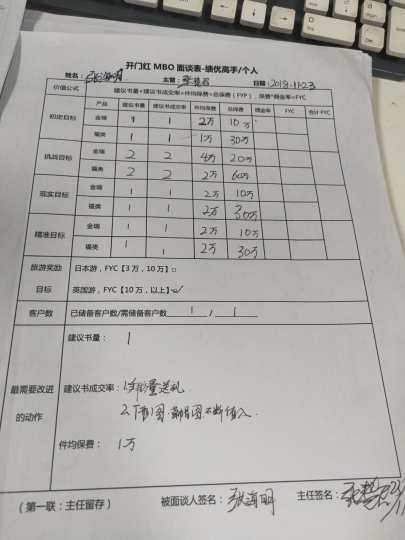 开门红 MBO 面谈表-绩优高手/个人
姓名: 张海明 主管: 日期: 2018.11.23
价值公式 建议书量*建议书成交率*件均保费=总保费（FYP），保费*佣金率=FYC
产品 建议书量 建议书成交率 件均保费 总保费 佣金率 FYC 合计 FYC
初定目标 金瑞 1 1 2万 10万
福类 1 1 1万 30万
挑战目标 金瑞 2 2 4万 20万
福类 2 2 2万 60万
现实目标 金瑞 1 1 2万 10万
福类 1 1 2万 30万
精准目标 金瑞 1 1 2万 10万
福类 1 1 2万 30万
旅游奖励目标 日本游，FYC【3万，10万】□
英国游，FYC【10万，以上】☑
客户数 已储备客户数/需储备客户数 1 / 1
最需要改进的动作
建议书量： 1
建议书成交率：1. 送礼
2.
件均保费： 1万
（第一联：主任留存） 被面谈人签名：张海明 主任签名：